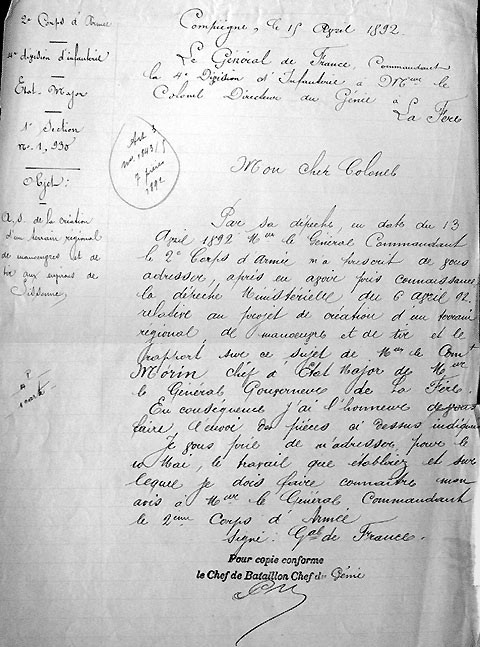 2e Corps d'Armée
4e division d'infanterie
Etat-Major
1e Section
n° 1,930
Objet:
A.S. de la création
d'un terrain régional
de manoeuvres et de
tir aux environs de
Sissonne
1 carte
Art 3
1843
1892
Compiègne, le 15 Avril 1892.
Le Général de France, Commandant
la 4e Division d'Infanterie à Meur le
Colonel Directeur du Génie à
La Fère
Mon cher Colonel
Par sa dépêche, en date du 13
Avril 1892 Meur le Général Commandant
le 2e Corps d'Armée m'a prescrit de vous
adresser, après en avoir pris connaissance
la dépêche Ministérielle du 6 avril 92,
relative au projet de création d'un terrain
régional de manoeuvre et de tir et le
rapport sur ce sujet de Meur le Comt
Morin chef d'Etat Major de Meur
le Général Gouverneur de La Fère.
En conséquence j'ai l'honneur de vous
faire l'envoi des pièces ci dessus indiquées
Je vous prie de m'adresser, pour le
10 Mai, le travail que établirez et sur
lequel je dois faire connaître mon
avis à Meur le Général Commandant
le 2eme Corps d'Armée
Signé: Gal de France.
Pour copie conforme
le Chef de Bataillon Chef du Génie